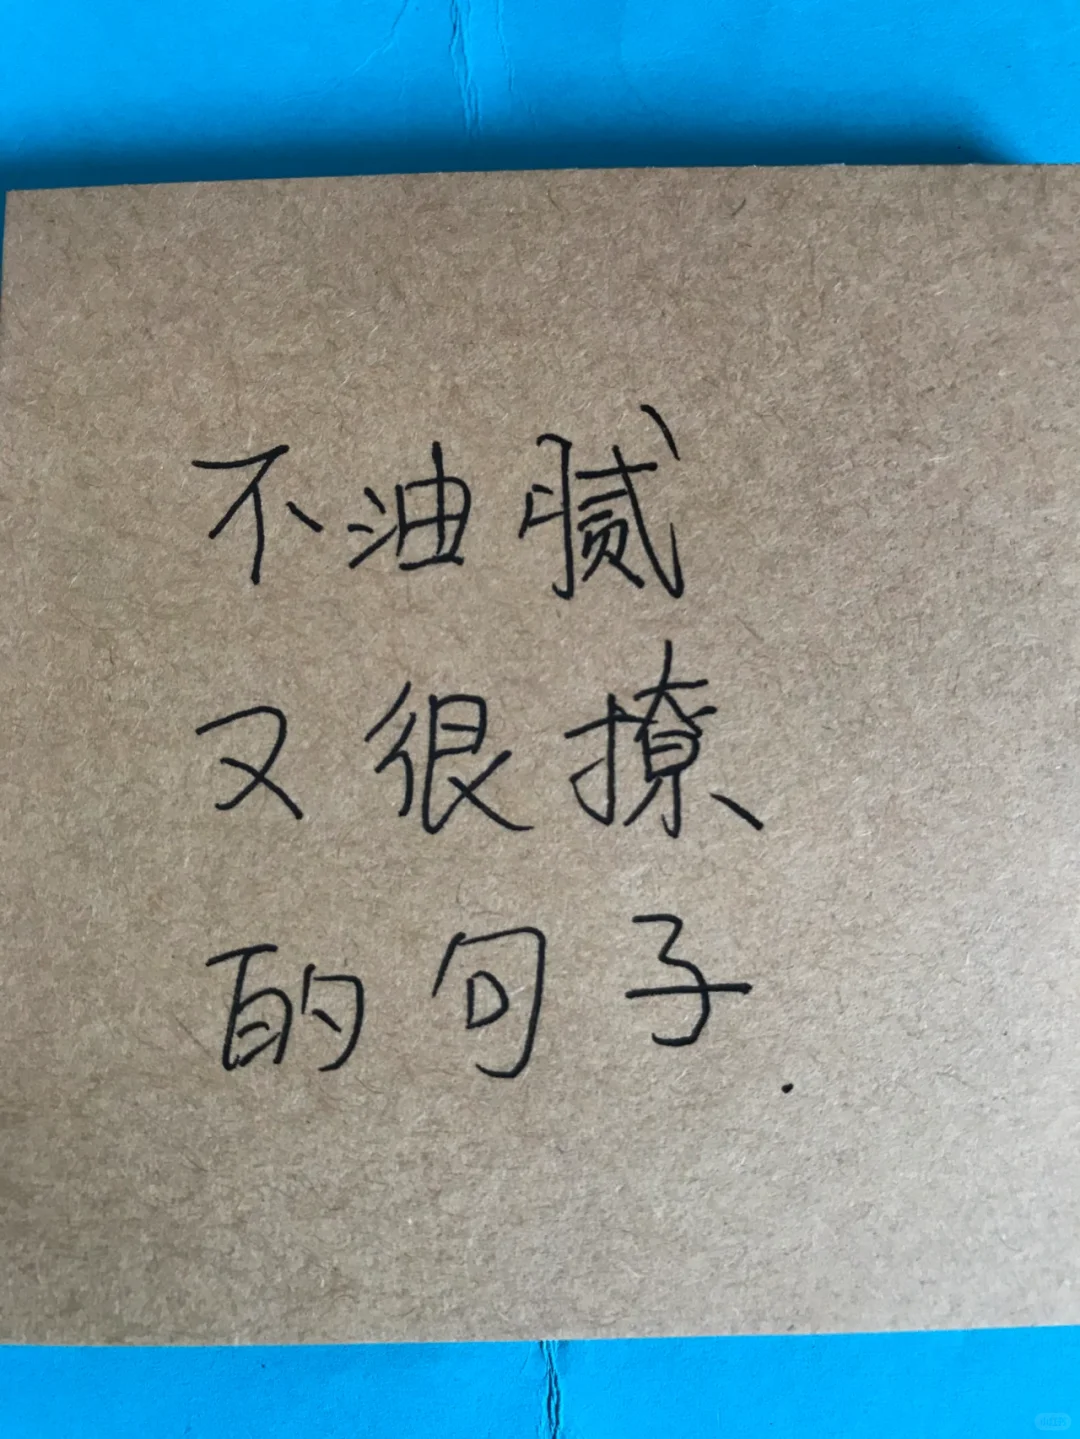 不油腻
又很撩
的句子.